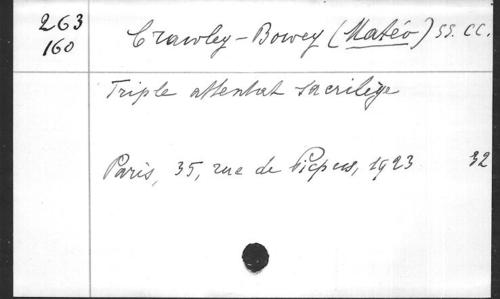 263 Crawley-Bowey (Matéo) SS. CC.
160
Triple attentat sacrilège
Paris, 35, rue de Picpus, 1923 32